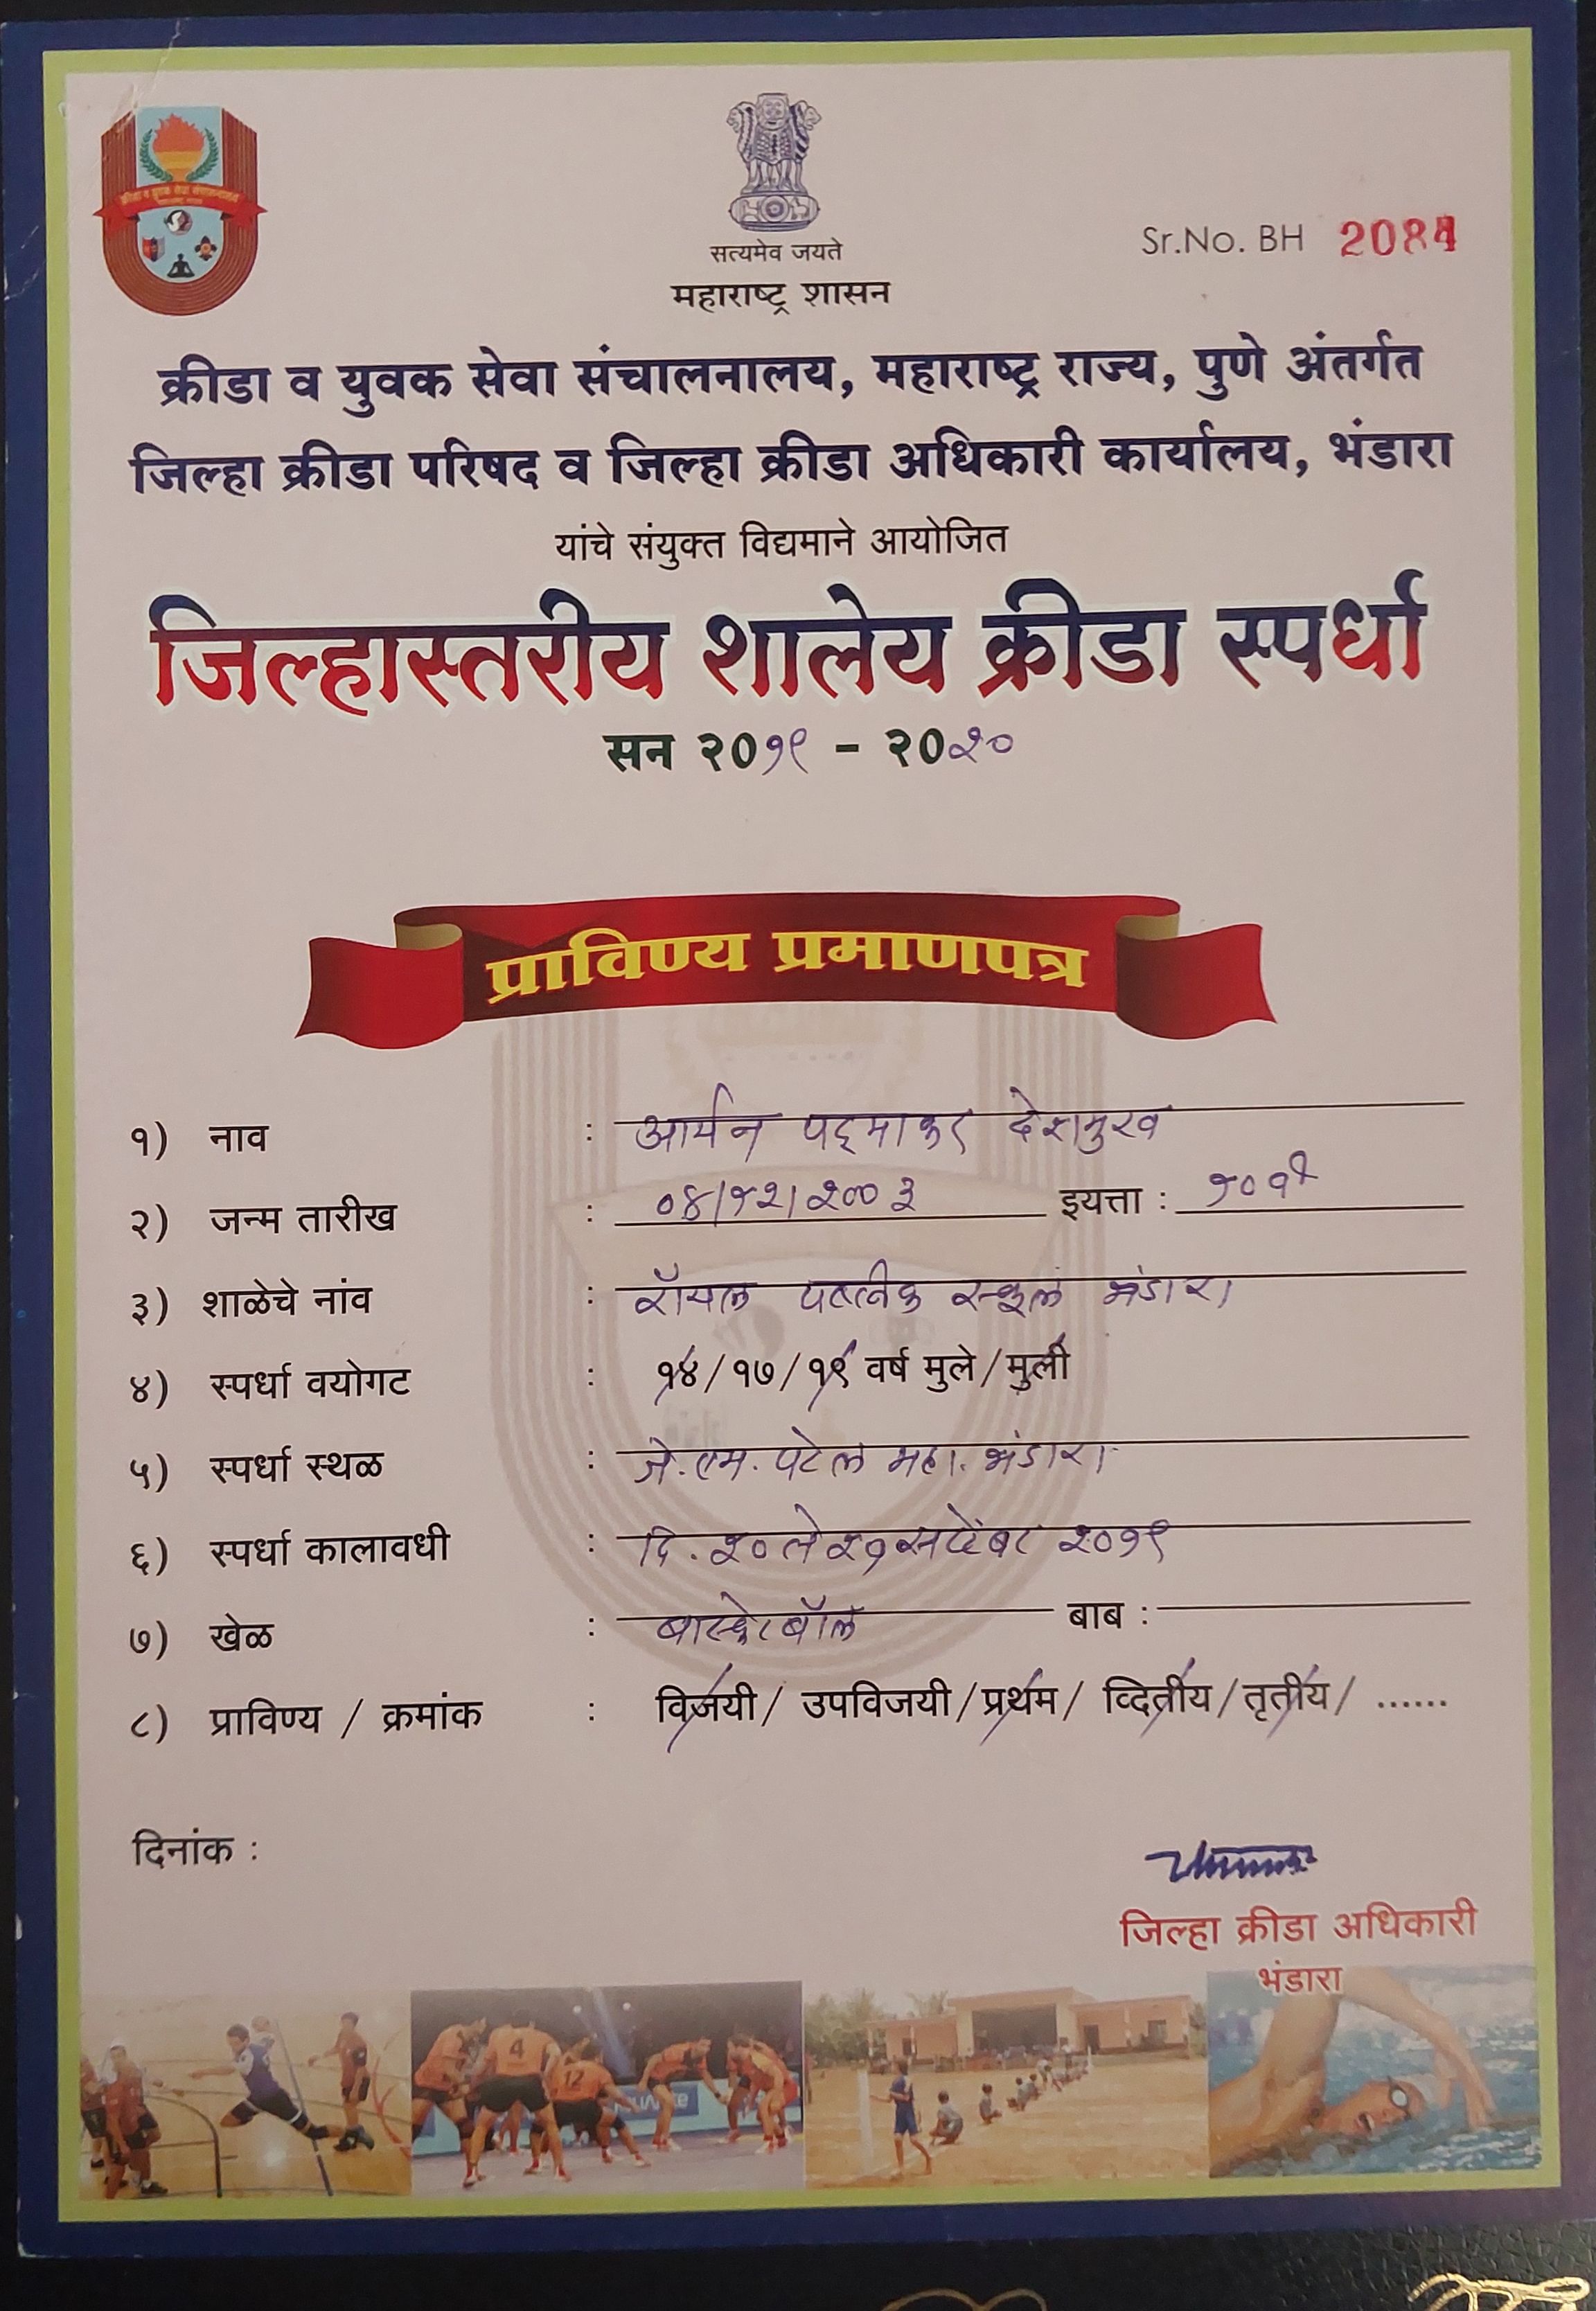 क्रीडा व युवक सेवा संचालनालय
सत्यमेव जयते
महाराष्ट्र शासन
Sr.No. BH 2084
क्रीडा व युवक सेवा संचालनालय, महाराष्ट्र राज्य, पुणे अंतर्गत
जिल्हा क्रीडा परिषद व जिल्हा क्रीडा अधिकारी कार्यालय, भंडारा
यांचे संयुक्त विद्यमाने आयोजित
जिल्हास्तरीय शालेय क्रीडा स्पर्धा
सन २०१९ - २०२०
प्राविण्य प्रमाणपत्र
१) नाव : आर्यन पद्माकर देशमुख
२) जन्म तारीख : ०४/१२/२००३ इयत्ता : १०वी
३) शाळेचे नांव : रॉयल पब्लीक स्कूल भंडारा
४) स्पर्धा वयोगट : १४/१७/१९ वर्ष मुले/मुली
५) स्पर्धा स्थळ : जे.एम. पटेल महा. भंडारा
६) स्पर्धा कालावधी : दि. २० ते २१ सप्टेंबर २०१९
७) खेळ : बास्केटबॉल बाब :
८) प्राविण्य / क्रमांक : विजयी/ उपविजयी/प्रथम/ व्दितीय/तृतीय/ ......
दिनांक :
जिल्हा क्रीडा अधिकारी
भंडारा
4
12